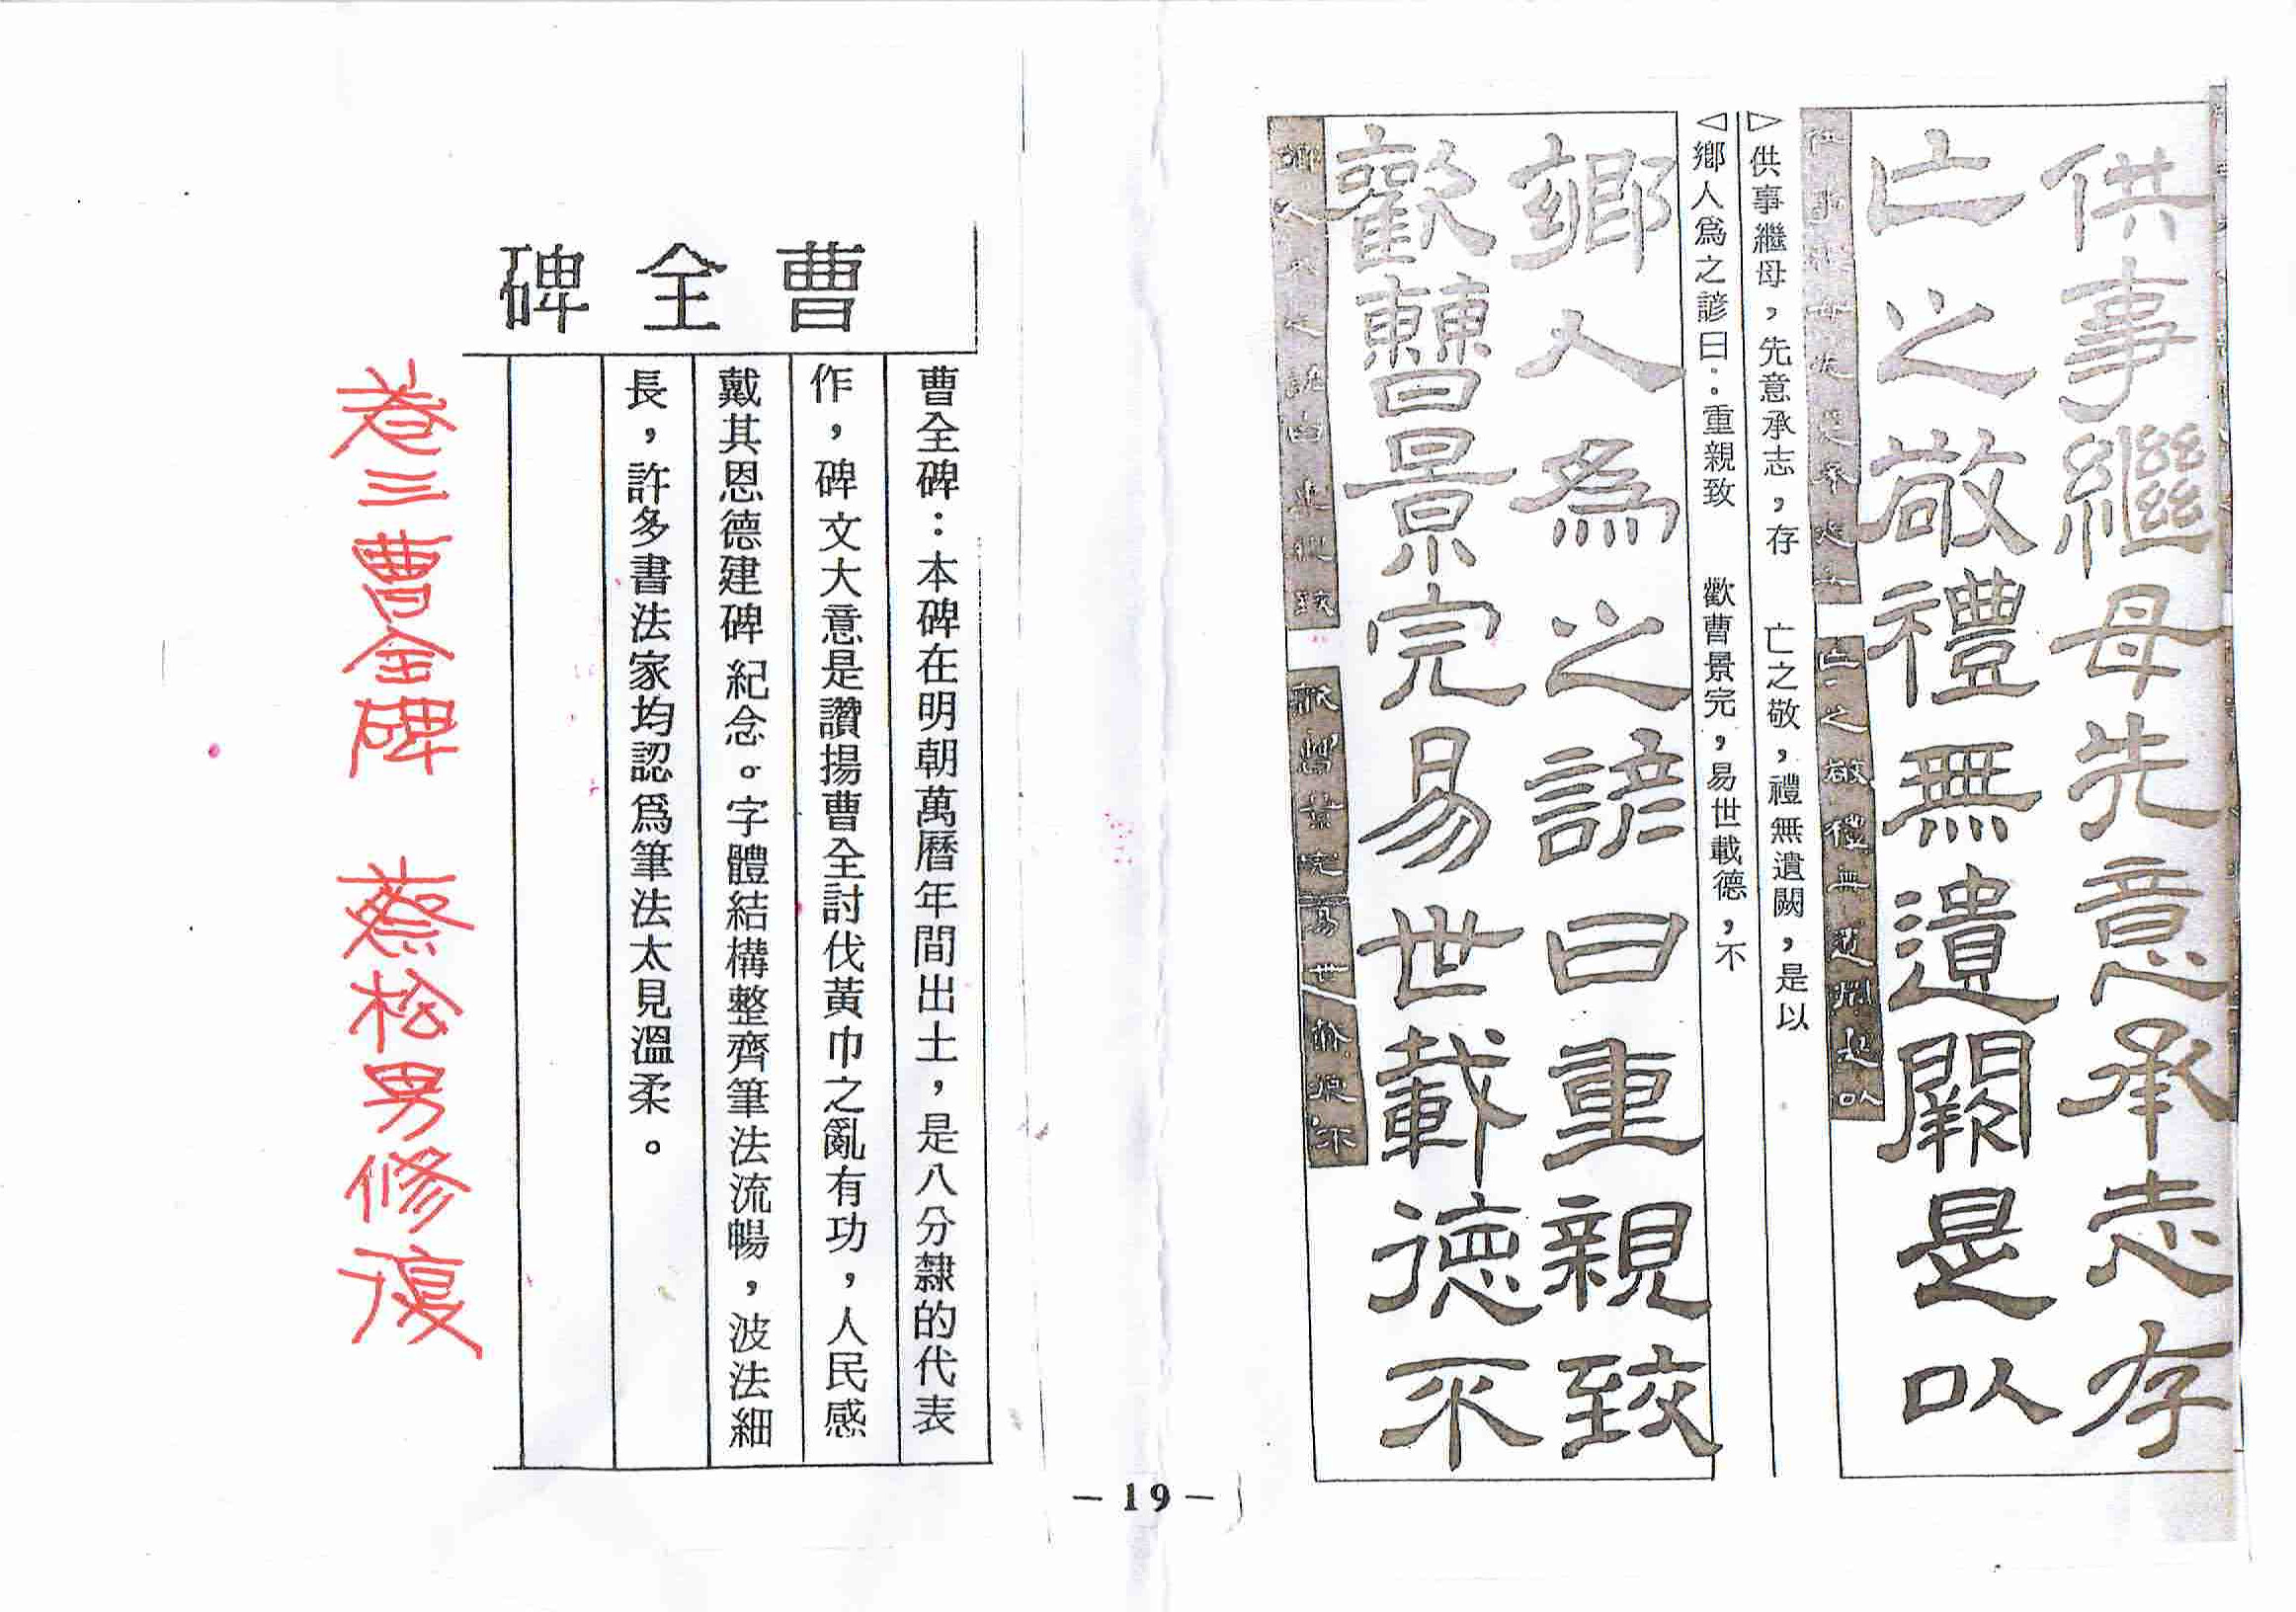 供事繼母先意承志存
亡之敬禮無遺闕是以
▷供事繼母，先意承志，存　亡之敬，禮無遺闕，是以
◁鄉人爲之諺曰：重親致　歡曹景完，易世載德，不
鄉人為之諺曰重親致
歡曹景完易世載德不
－19－
曹全碑
曹全碑：本碑在明朝萬曆年間出土，是八分隸的代表
作，碑文大意是讚揚曹全討伐黃巾之亂有功，人民感
戴其恩德建碑紀念。字體結構整齊筆法流暢，波法細
長，許多書法家均認爲筆法太見溫柔。
卷三曹全碑　蔡松男修復